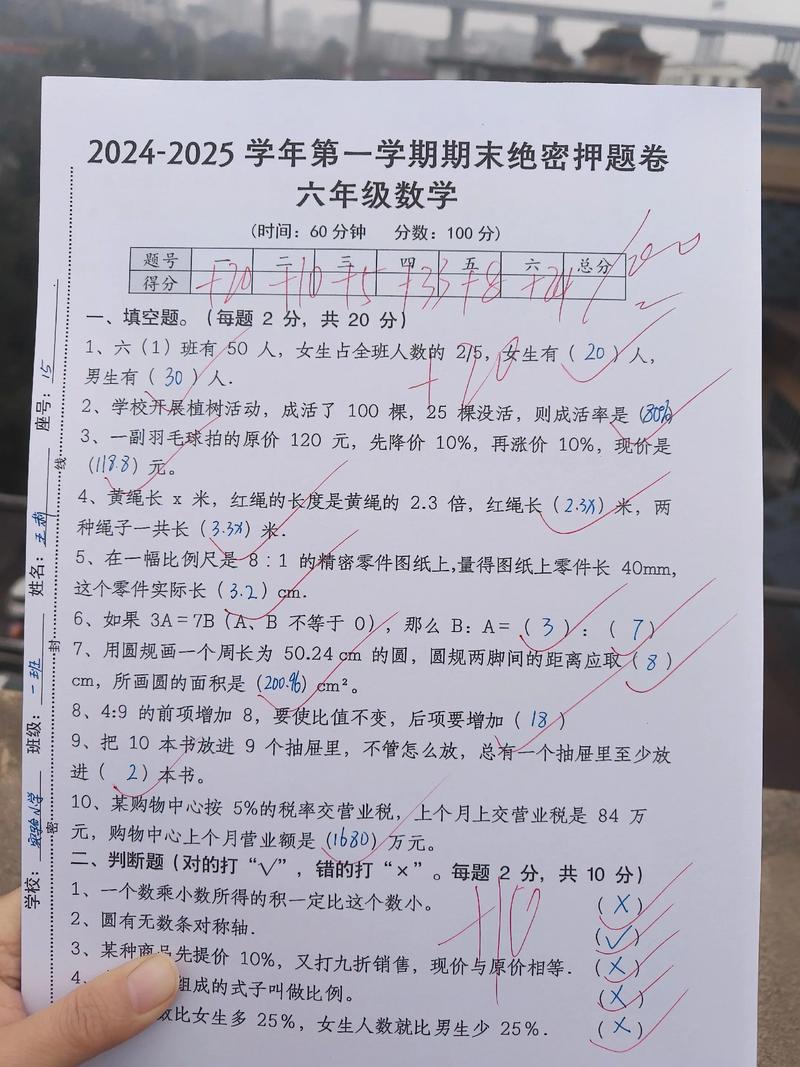 2024-2025 学年第一学期期末绝密押题卷
六年级数学
(时间：60 分钟 分数：100 分)
题号 一 二 三 四 五 六 总分
得分 +20 +10 +5 +33 +8 +24 100
一、填空题。(每题 2 分，共 20 分)
+20
1、六（1）班有 50 人，女生占全班人数的 2/5，女生有（ 20 ）人，
男生有（ 30 ）人.
2、学校开展植树活动，成活了 100 棵，25 棵没活，则成活率是（80%）
3、一副羽毛球拍的原价 120 元，先降价 10%，再涨价 10%，现价是
（118.8）元。
4、黄绳长 x 米，红绳的长度是黄绳的 2.3 倍，红绳长（2.3x）米，两
种绳子一共长（3.3x）米.
5、在一幅比例尺是 8：1 的精密零件图纸上,量得图纸上零件长 40mm,
这个零件实际长（3.2）cm.
6、如果 3A＝7B（A、B 不等于 0），那么 B：A＝（ 3 ）：（ 7 ）
7、用圆规画一个周长为 50.24 cm 的圆，圆规两脚间的距离应取（ 8 ）
cm，所画圆的面积是（200.96）cm²。
8、4:9 的前项增加 8，要使比值不变，后项要增加（ 18 ）
9、把 10 本书放进 9 个抽屉里，不管怎么放，总有一个抽屉里至少放
进（ 2 ）本书。
10、某购物中心按 5%的税率交营业税，上个月上交营业税是 84 万
元，购物中心上个月营业额是（1680）万元。
二、判断题（对的打“√”，错的打“×”。每题 2 分，共 10 分）
+10
1、一个数乘小数所得的积一定比这个数小。 （ × ）
2、圆有无数条对称轴. （ √ ）
3、某种商品先提价 10%，又打九折销售，现价与原价相等. （ × ）
4、组成的式子叫做比例。 （ × ）
数比女生多 25%，女生人数就比男生少 25%. （ × ）
学校：实验小学 班级：一班 姓名： 座号：15
密 封 线